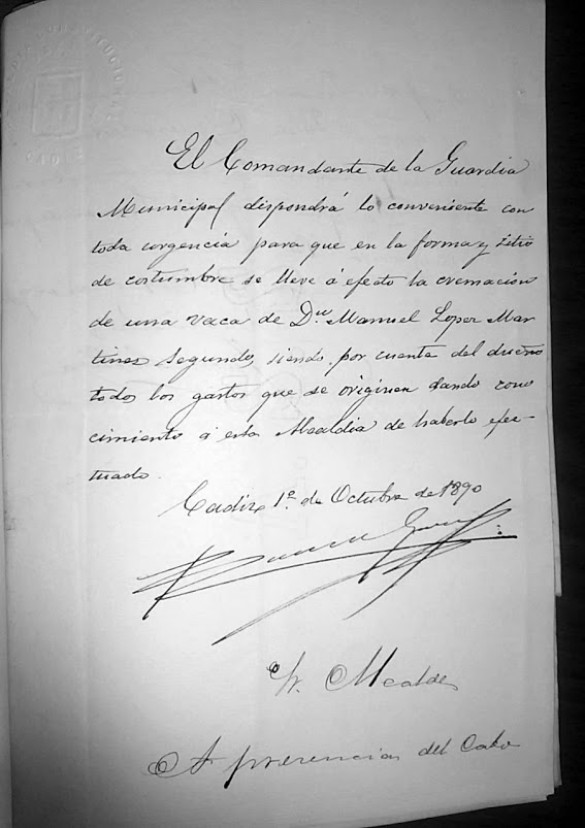 El Comandante de la Guardia
Municipal dispondrá lo conveniente con
toda urgencia para que en la forma y sitio
de costumbre se lleve á efecto la cremación
de una vaca de Dn Manuel Lopez Mar
tines Segundo, siendo por cuenta del dueño
todos los gastos que se originen dando cono
cimiento á esta Alcaldia de haberlo efec-
tuado.
Cadiz 1º de Octubre de 1890
Sr. Alcalde
A presencia del Cabo